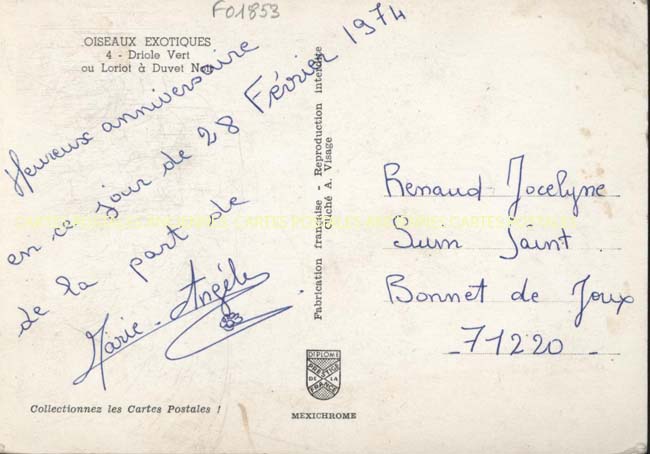 F01853
OISEAUX EXOTIQUES
4 - Driole Vert
ou Loriot à Duvet Noir
Heureux anniversaire
en ce jour de 28 Février 1974
de la part de
Marie-Angèle
Collectionnez les Cartes Postales !
Fabrication française - Reproduction interdite
Cliché A. Visage
DIPLOME
PRESTIGE
DE LA
FRANCE
MEXICHROME
Renaud Jocelyne
Suin Saint
Bonnet de Joux
71220